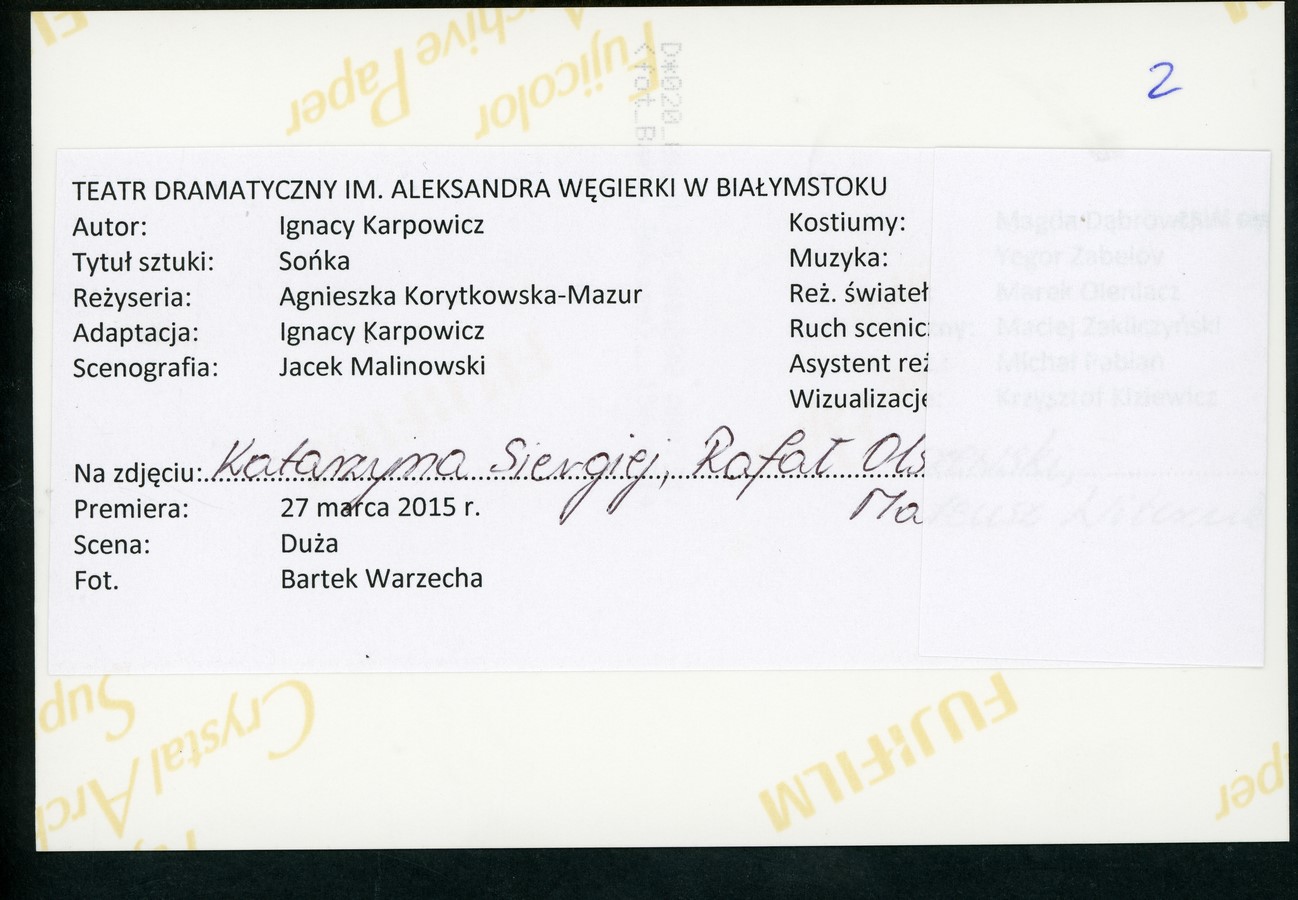 2
Fujicolor
Archive Paper
TEATR DRAMATYCZNY IM. ALEKSANDRA WĘGIERKI W BIAŁYMSTOKU
Autor: Ignacy Karpowicz Kostiumy: Magda Dąbrowska
Tytuł sztuki: Sońka Muzyka: Yegor Zabelov
Reżyseria: Agnieszka Korytkowska-Mazur Reż. świateł Marek Oleniacz
Adaptacja: Ignacy Karpowicz Ruch sceniczny: Maciej Zakliczyński
Scenografia: Jacek Malinowski Asystent reż Michał Fabian
Wizualizacje: Krzysztof Kiziewicz
Na zdjęciu: Katarzyna Siergiej, Rafał Ols
Premiera: 27 marca 2015 r. Ma
Scena: Duża
Fot. Bartek Warzecha
Crystal Arch
Sup
FUJIFILM